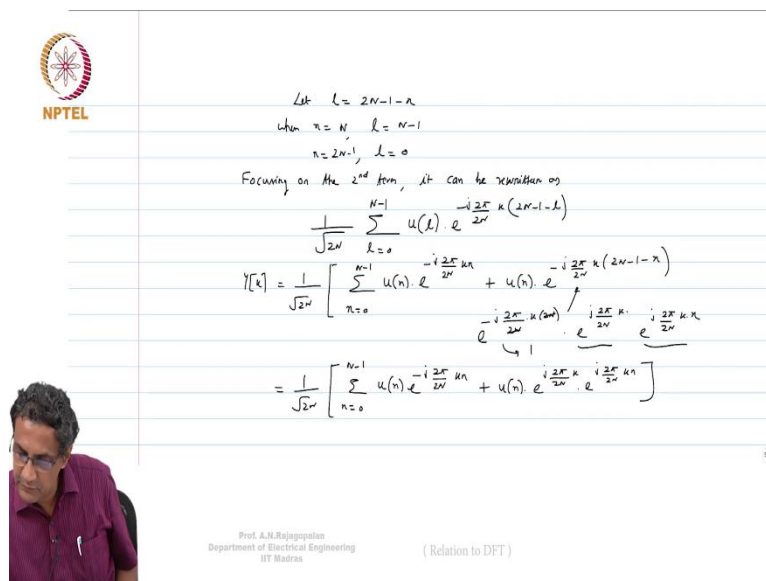 NPTEL
Let l = 2N-1-n
when n = N, l = N-1
n = 2N-1, l = 0
Focusing on the 2nd term, it can be rewritten as
1/√2N ∑_{l=0}^{N-1} u(l) . e^{-j 2π/2N k (2N-1-l)}
Y[k] = 1/√2N [ ∑_{n=0}^{N-1} u(n) . e^{-j 2π/2N kn} + u(n) . e^{-j 2π/2N k (2N-1-n)} ]
e^{-j 2π/2N . k (2N)} . e^{j 2π/2N k .} e^{j 2π/2N k . n}
↳ 1
= 1/√2N [ ∑_{n=0}^{N-1} u(n) e^{-j 2π/2N kn} + u(n) . e^{j 2π/2N k} . e^{j 2π/2N kn} ]
Prof. A.N.Rajagopalan
Department of Electrical Engineering
IIT Madras
( Relation to DFT )